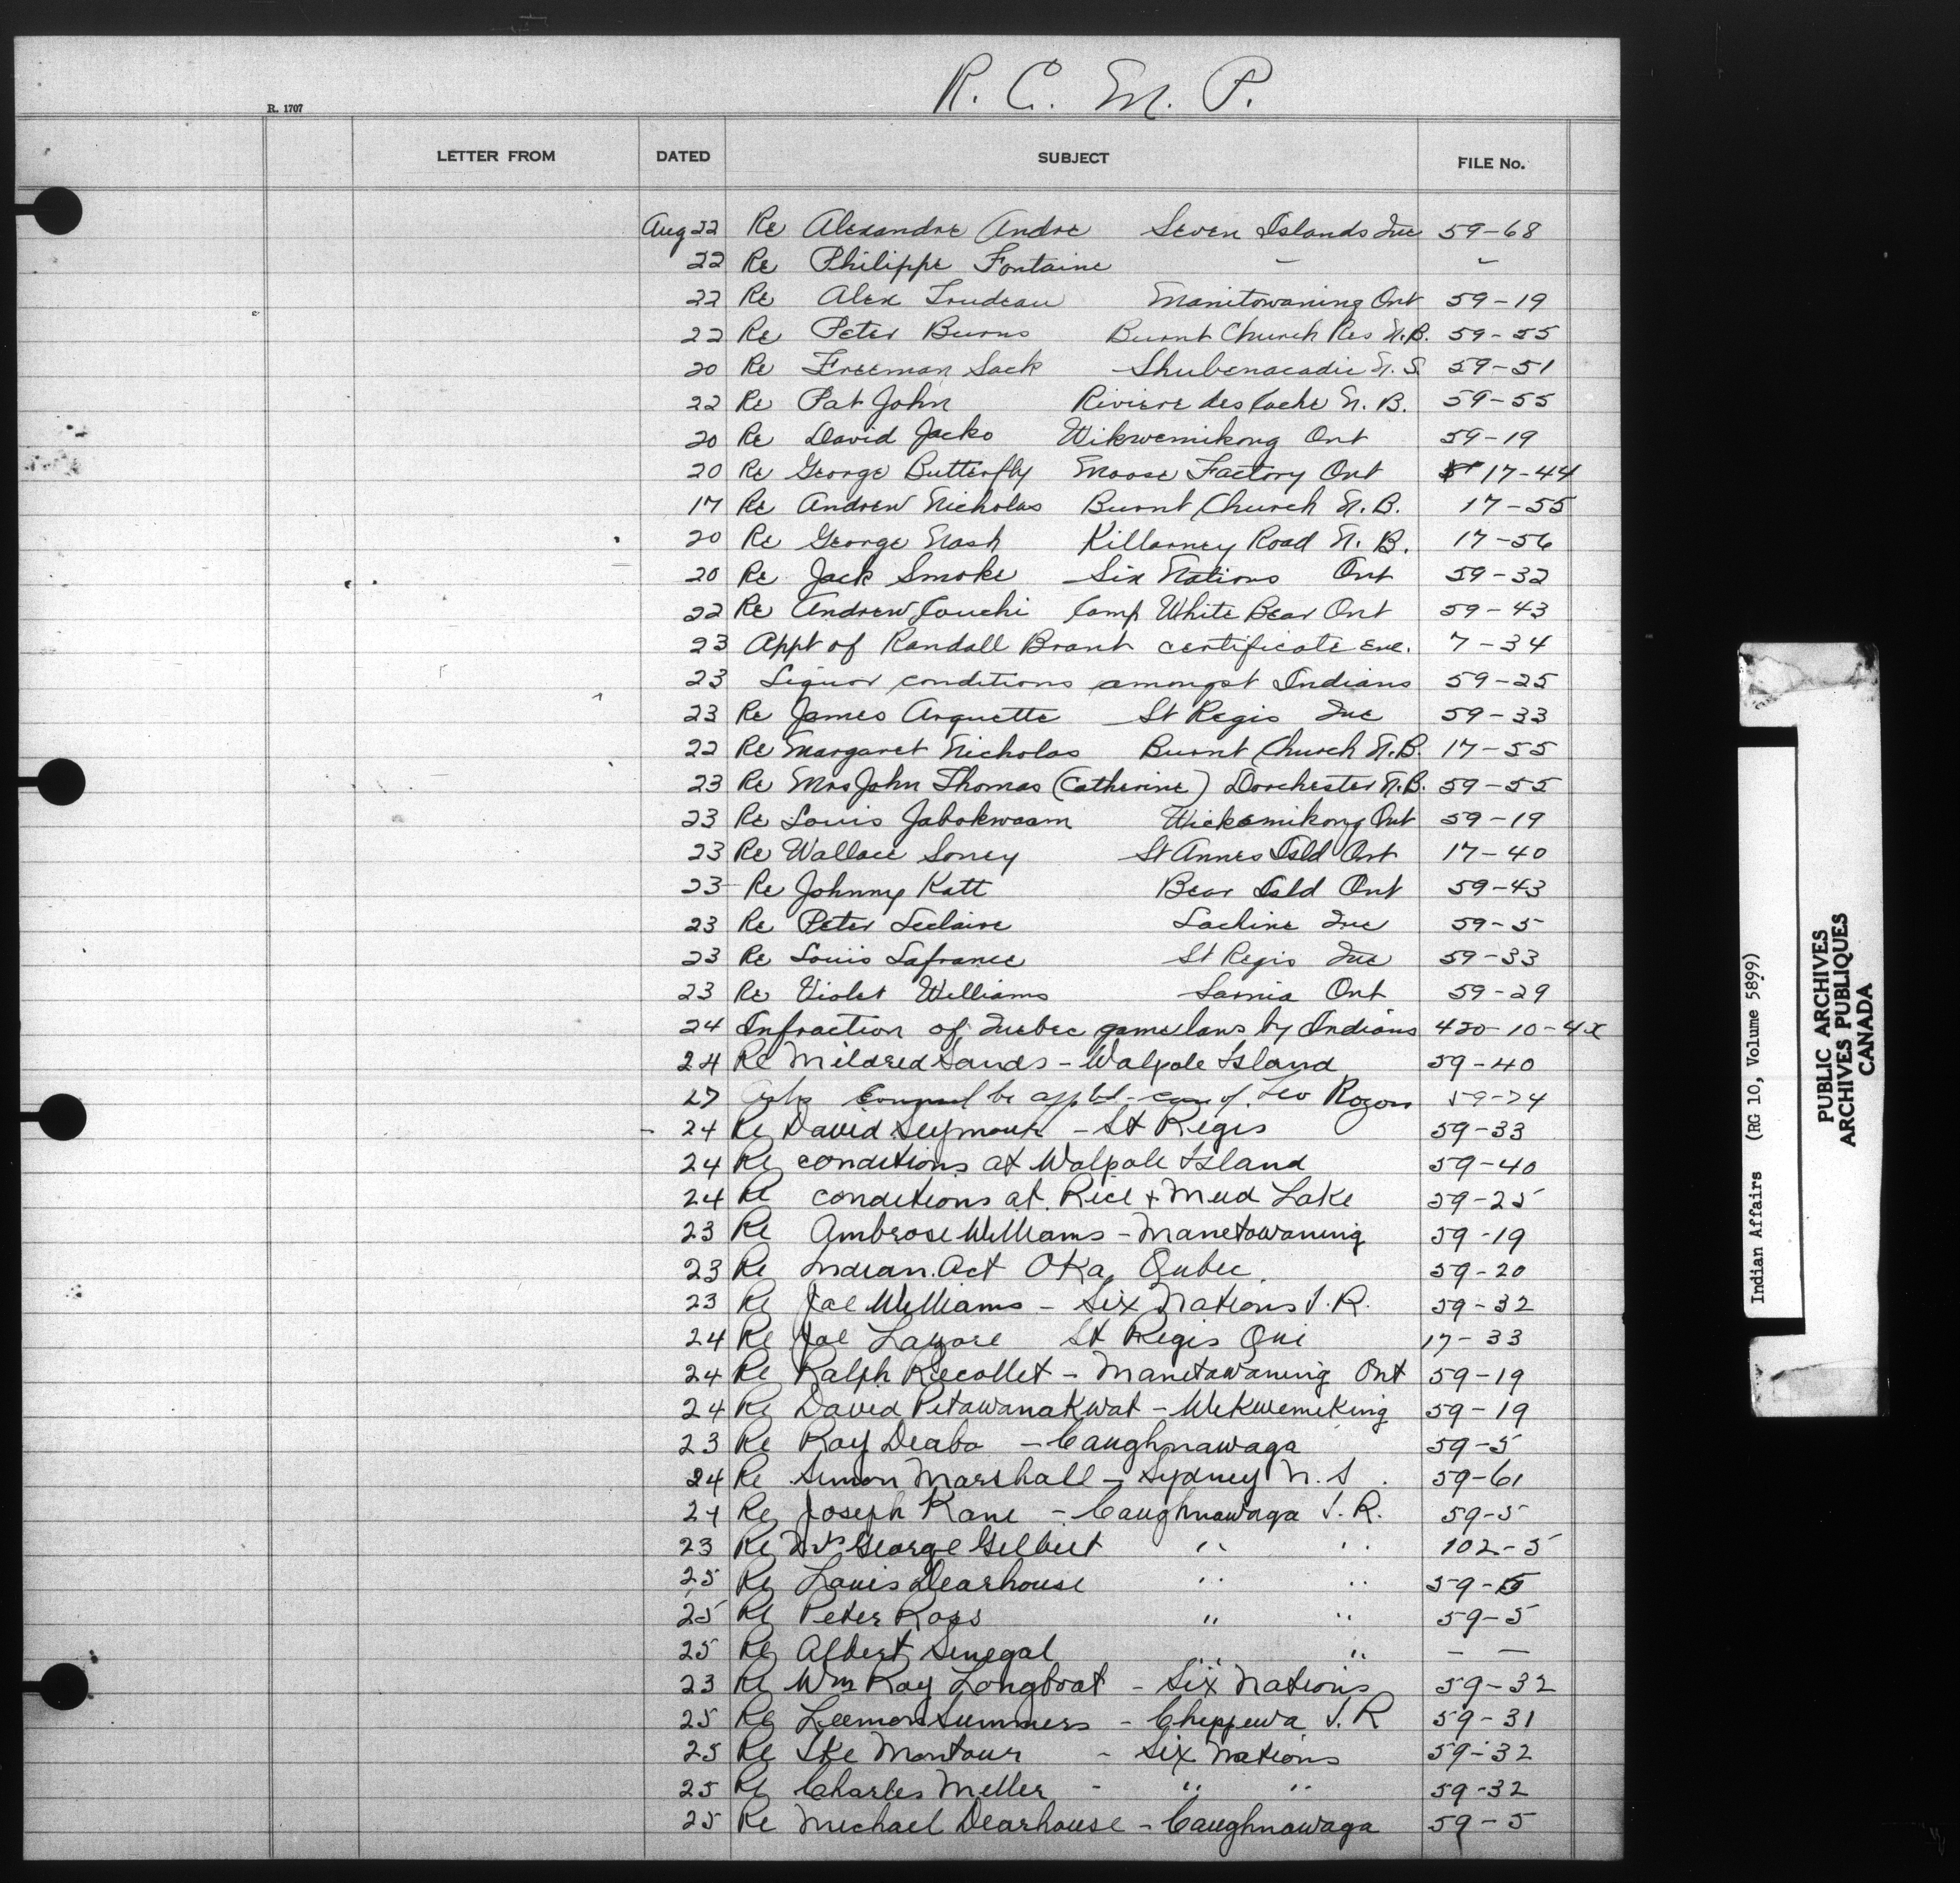 R. C. M. P.
R. 1707
LETTER FROM DATED SUBJECT FILE No.
Aug 22 Re Alexandre Andre Seven Islands Que 59-68
22 Re Philippe Fontaine - -
22 Re Alex Trudeau Manitowaning Ont 59-19
22 Re Peter Burns Burnt Church Res N.B. 59-55
20 Re Freeman Sack Shubenacadie N.S. 59-51
22 Re Pat John Riviere des Cache N.B. 59-55
20 Re David Jacko Wikwemikong Ont 59-19
20 Re George Butterfly Moose Factory Ont 17-44
17 Re Andrew Nicholas Burnt Church N.B. 17-55
20 Re George Nash Killarney Road N.B. 17-56
20 Re Jack Smoke Six Nations Ont 59-32
22 Re Andrew Couchi Camp White Bear Ont 59-43
23 Appt of Randall Brant certificate enc. 7-34
23 Liquor conditions amongst Indians 59-25
23 Re James Arquette St Regis Que 59-33
22 Re Margaret Nicholas Burnt Church N.B. 17-55
23 Re Mrs John Thomas (Catherine) Dorchester N.B. 59-55
23 Re Louis Jabokwaam Wickemikong Ont 59-19
23 Re Wallace Soney St Annes Isld Ont 17-40
23 Re Johnny Katt Bear Isld Ont 59-43
23 Re Peter Leclaire Lachine Que 59-5
23 Re Louis Lafrance St Regis Que 59-33
23 Re Violet Williams Sarnia Ont 59-29
24 Infraction of Quebec game laws by Indians 420-10-4x
24 Re Mildred Sands - Walpole Island 59-40
27 Asks Counsel be apptd - case of Leo Rogers 59-24
24 Re David Seymour - St Regis 59-33
24 Re conditions at Walpole Island 59-40
24 Re conditions at Rice + Mud Lake 59-25
23 Re Ambrose Williams - Manetowaning 59-19
23 Re Indian Act Oka, Qubec. 59-20
23 Re Joe Williams - Six Nations I.R. 59-32
24 Re Joe Lazore St Regis Que 17-33
24 Re Ralph Recollet - Manetowaning Ont 59-19
24 Re David Petawanakwat - Wekwemeking 59-19
23 Re Ray Deabo - Caughnawaga 59-5
24 Re Simon Marshall - Sydney N.S. 59-61
24 Re Joseph Kane - Caughnawaga I.R. 59-5
23 Re Mrs George Gilbert " " 102-5
25 Re Louis Dearhouse " " 59-5
25 Re Peter Ross " " 59-5
25 Re Albert Senegal " " - -
23 Re Wm Ray Longboat - Six Nations 59-32
25 Re Leemon Summers - Chippewa I.R 59-31
25 Re Ike Montour - Six Nations 59-32
25 Re Charles Miller - " " 59-32
25 Re Michael Dearhouse - Caughnawaga 59-5
Indian Affairs (RG 10, Volume 5899)
PUBLIC ARCHIVES
ARCHIVES PUBLIQUES
CANADA